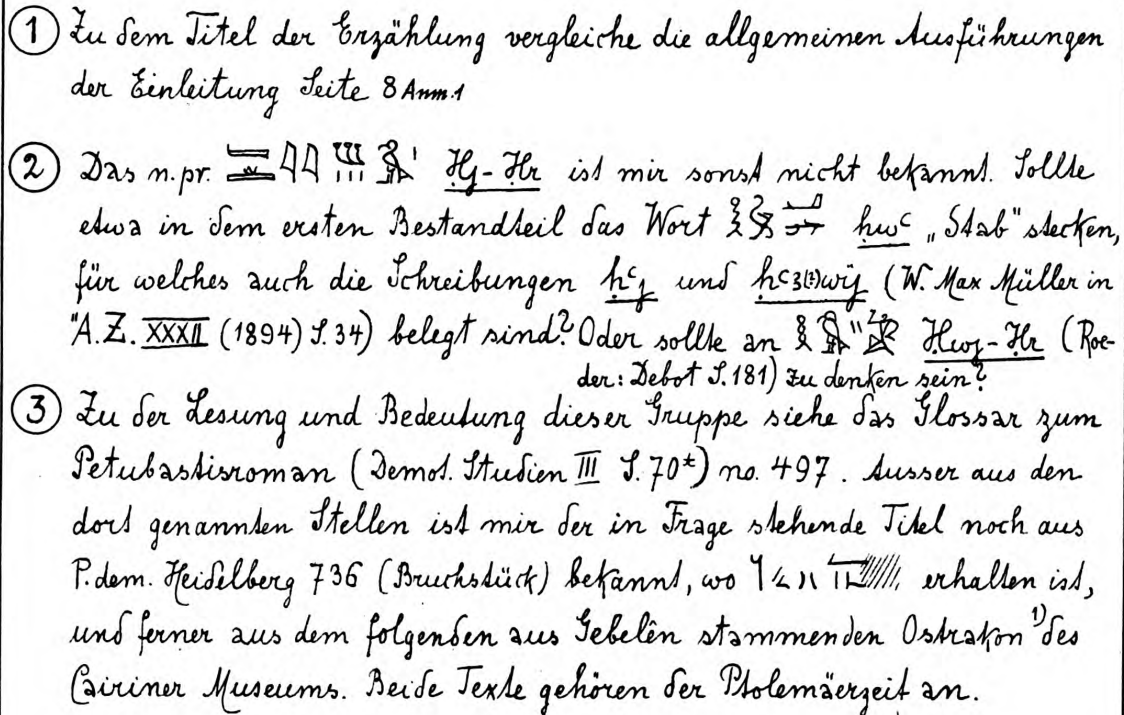 ① Zu dem Titel der Erzählung vergleiche die allgemeinen Ausführungen
der Einleitung Seite 8 Anm. 1
② Das n. pr. Ḥj-Ḥr ist mir sonst nicht bekannt. Sollte
etwa in dem ersten Bestandteil das Wort ḥwꜥ „Stab" stecken,
für welches auch die Schreibungen ḥꜥj und ḥꜥꜣ(?)wj (W. Max Müller in
"A.Z. XXXII (1894) S. 34) belegt sind? Oder sollte an Ḥwj-Ḥr (Roe-
der: Debot S. 181) zu denken sein?
③ Zu der Lesung und Bedeutung dieser Gruppe siehe das Glossar zum
Petubastisroman (Demot. Studien III S. 70*) no. 497. Ausser aus den
dort genannten Stellen ist mir der in Frage stehende Titel noch aus
P. dem. Heidelberg 736 (Bruchstück) bekannt, wo erhalten ist,
und ferner aus dem folgenden aus Gebelên stammenden Ostrakon ¹⁾ des
Cairiner Museums. Beide Texte gehören der Ptolemäerzeit an.